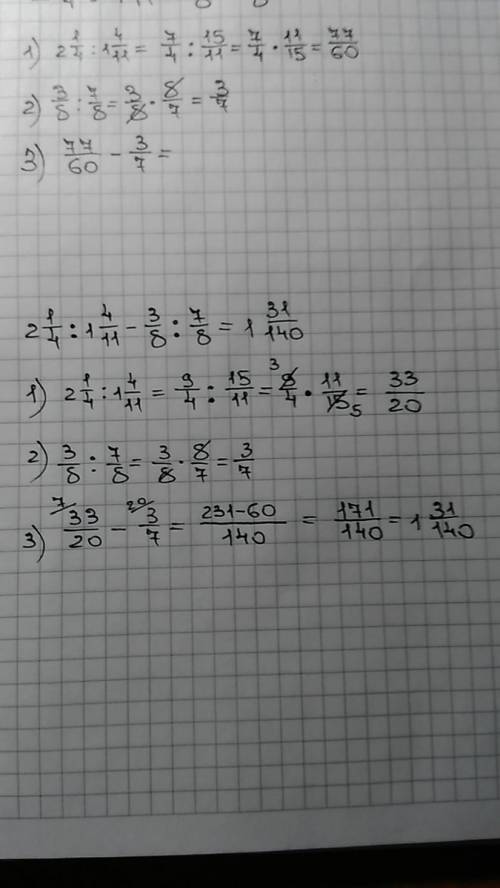 1) 2 1/4 : 1 4/11 = 7/4 : 15/11 = 7/4 · 11/15 = 77/60
2) 3/8 : 7/8 = 3/8 · 8/7 = 3/7
3) 77/60 - 3/7 =
2 1/4 : 1 4/11 - 3/8 : 7/8 = 1 31/140
1) 2 1/4 : 1 4/11 = 9/4 : 15/11 = 3 9/4 · 11/15 5 = 33/20
2) 3/8 : 7/8 = 3/8 · 8/7 = 3/7
3) 7/ 33/20 - 20/ 3/7 = 231-60/140 = 171/140 = 1 31/140